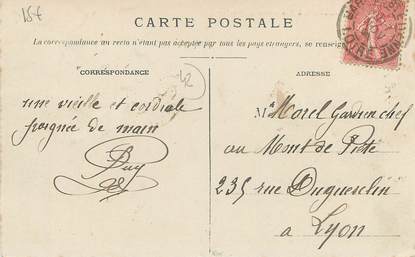 15f
CARTE POSTALE
La correspondance au recto n'étant pas acceptée par tous les pays étrangers, se renseign
CORRESPONDANCE
ADRESSE
42
une vieille et cordiale
poignée de main
Puy
Mr Morel Gardien chef
au Mont de Piété
235 rue Duguesclin
a Lyon